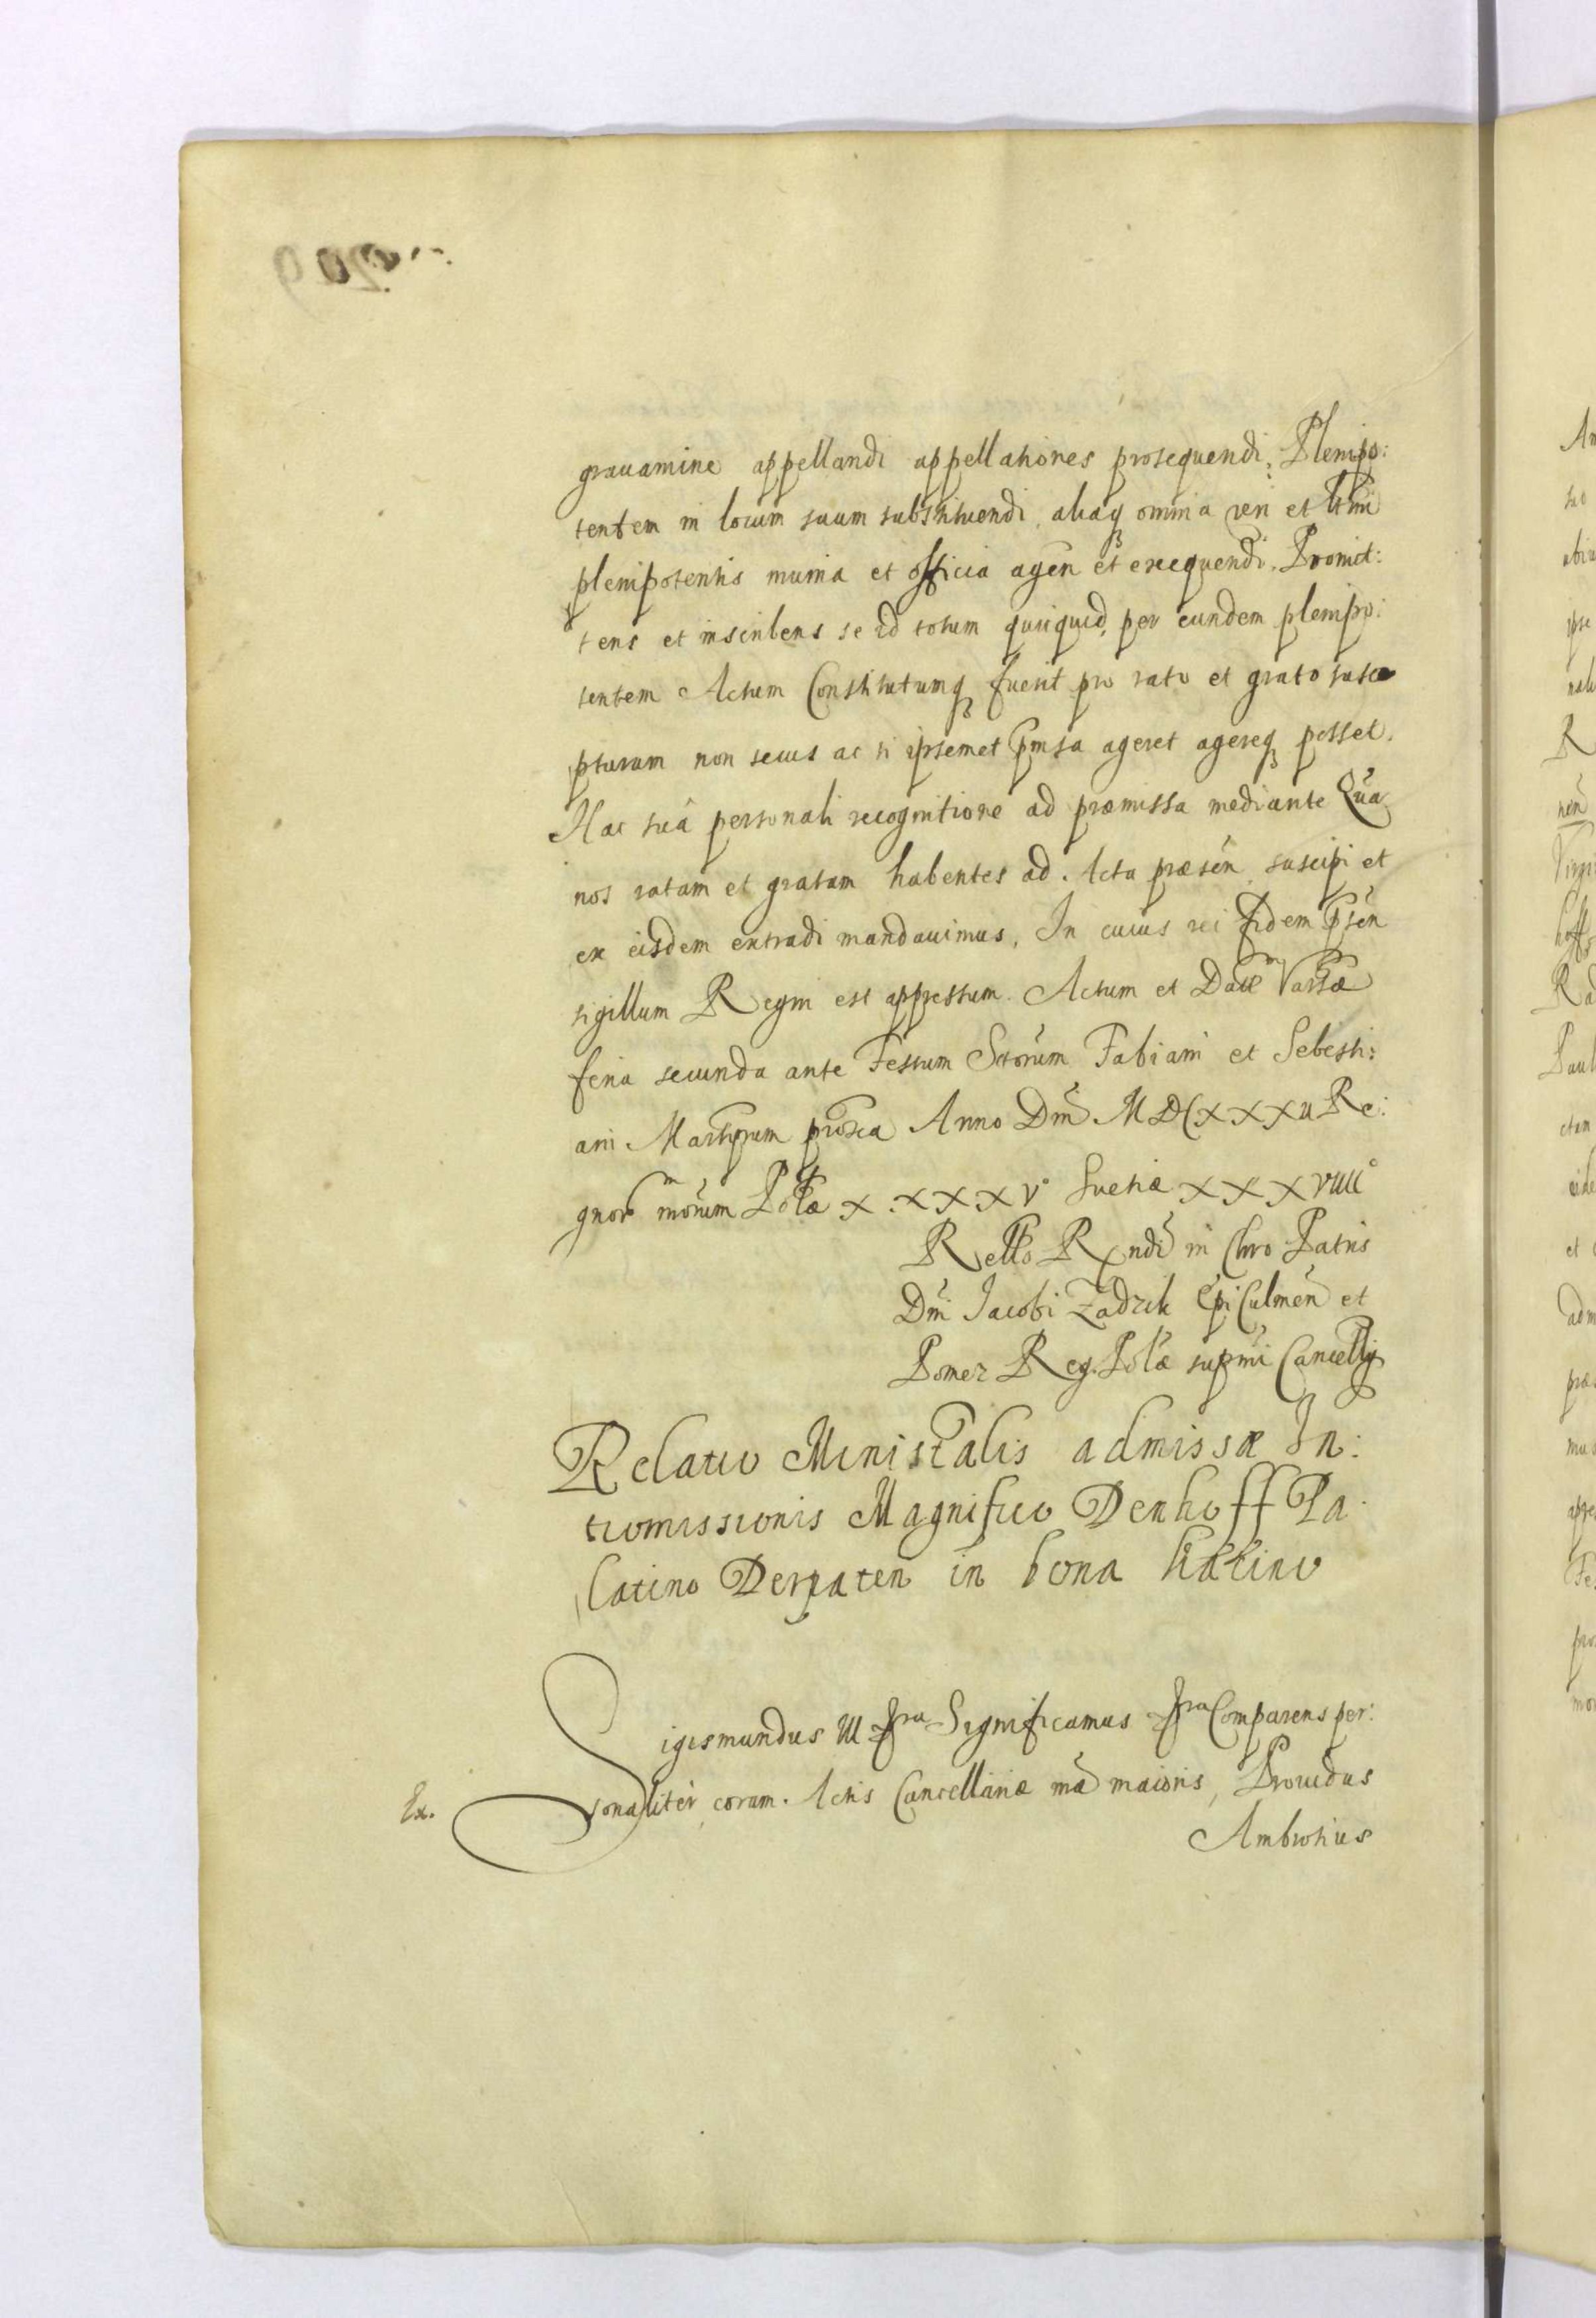 grauamine appellandi appellationes prosequendi, Plenipo:
tentem in locum suum substituendi, aliaq omnia veri et ltmi
plenipotentis munia et officia agen et exequendi. Promit:
tens et inscribens se id totum quicquid per eundem plenipo:
tentem Actum Constitutumq fuerit pro rato et grato susce
pturum non secus ac si ipsemet pmsa ageret agereq posset.
Hac suâ personali recognitione ad præmissa mediante Qua
nos ratam et gratam habentes ad Acta præsen suscipi et
ex eisdem extradi mandauimus, In cuius rei fidem psen
sigillum Regni est appressum. Actum et Dat Varsæ
feria secunda ante Festum Sctorum Fabiani et Sebesti:
ani Martyrum proxa Anno Dni MDCXXXII Re:
gnor nrorum Polæ XXXXV° Suetiæ XXXVIIII°
Rello Rndi in Chro Patris
Dni Jacobi Zadzik Epi Culmen et
Pomez Reg. Polæ supmi Cancellrij
Relatio Ministralis admissæ In:
tromissionis Magnifico Denhoff Pa:
latino Derpaten in bona
Sigismundus III fra Significamus fra Comparens per:
Ex. sonaliter coram Actis Cancellariæ nræ maioris, Prouidus
Ambrosius